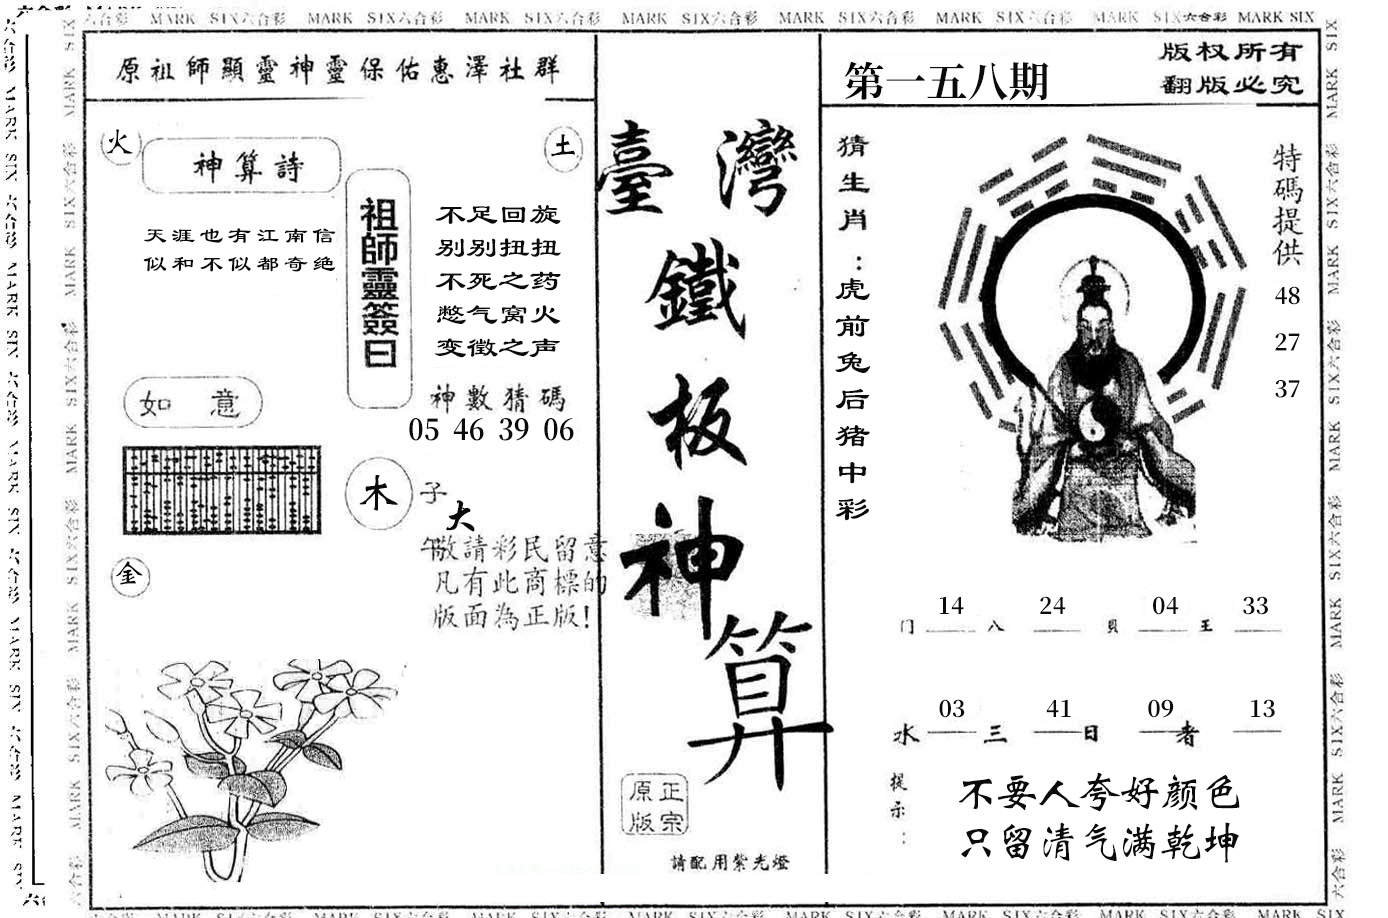 原祖師顯靈神靈保佑惠澤社群
火
神算詩
土
天涯也有江南信
似和不似都奇绝
祖師靈簽曰
不足回旋
别别扭扭
不死之药
憋气窝火
变徵之声
神數猜碼
05 46 39 06
如 意
木
子
大
午
金
敬請彩民留意
凡有此商標的
版面為正版!
臺灣
鐵
板
神
算
原正
版宗
請配用紫光燈
第一五八期
版权所有
翻版必究
猜生肖:虎前兔后猪中彩
特碼提供
48
27
37
14 24 04 33
门 八 貝 王
03 41 09 13
水 三 日 者
提示:
不要人夸好颜色
只留清气满乾坤
MARK SIX六合彩 MARK SIX六合彩 MARK SIX六合彩